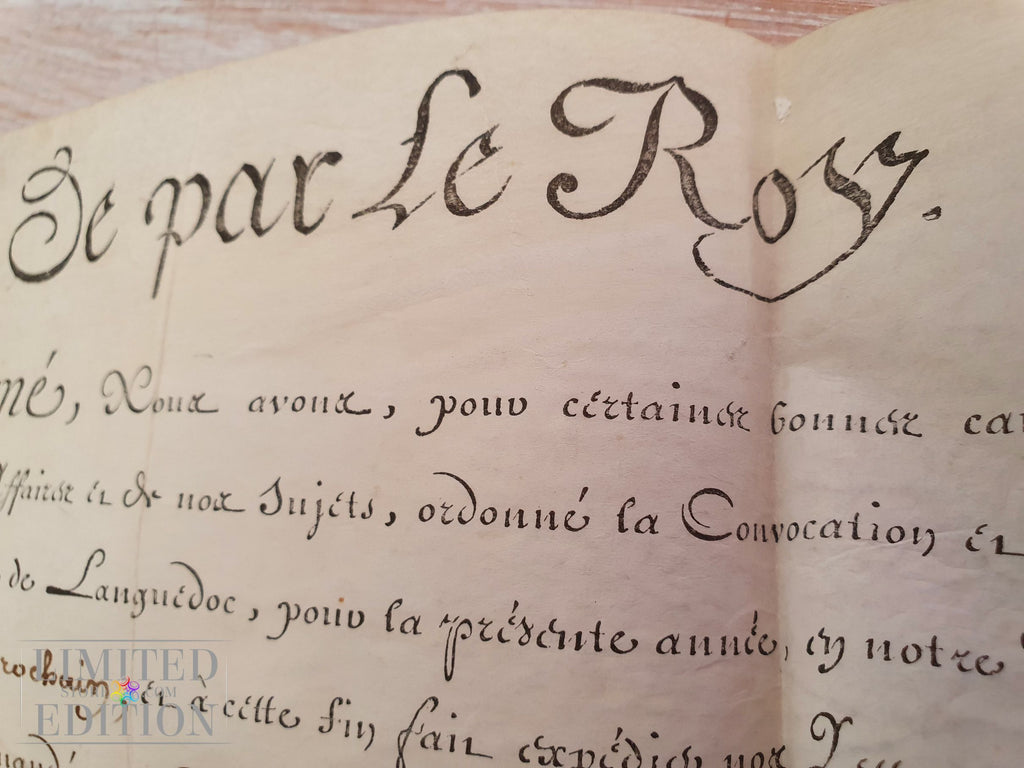 De par Le Roy.
mé, Nous avons, pour certaines bonnes cau
Affaires et de nos Sujets, ordonné la Convocation et
de Languédoc, pour la présente année, en notre
rochain et à cette fin fait expédier nos
LIMITED
EDITION